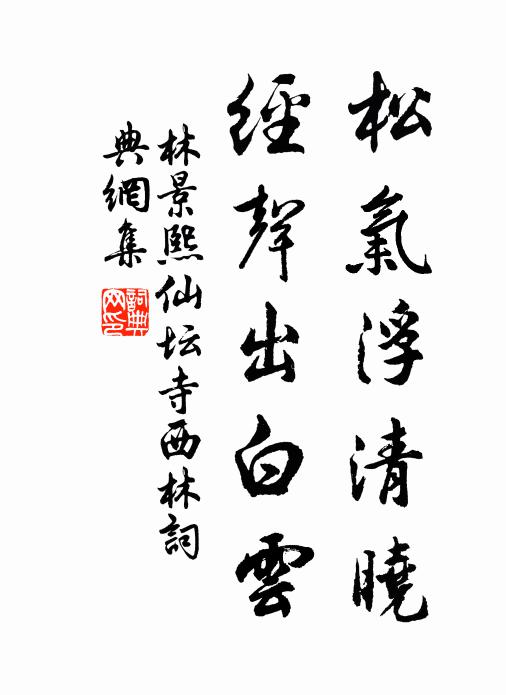 松氣浮清曉
經聲出白雲
林景熙仙坛寺西林詞
典網集
詞典网印